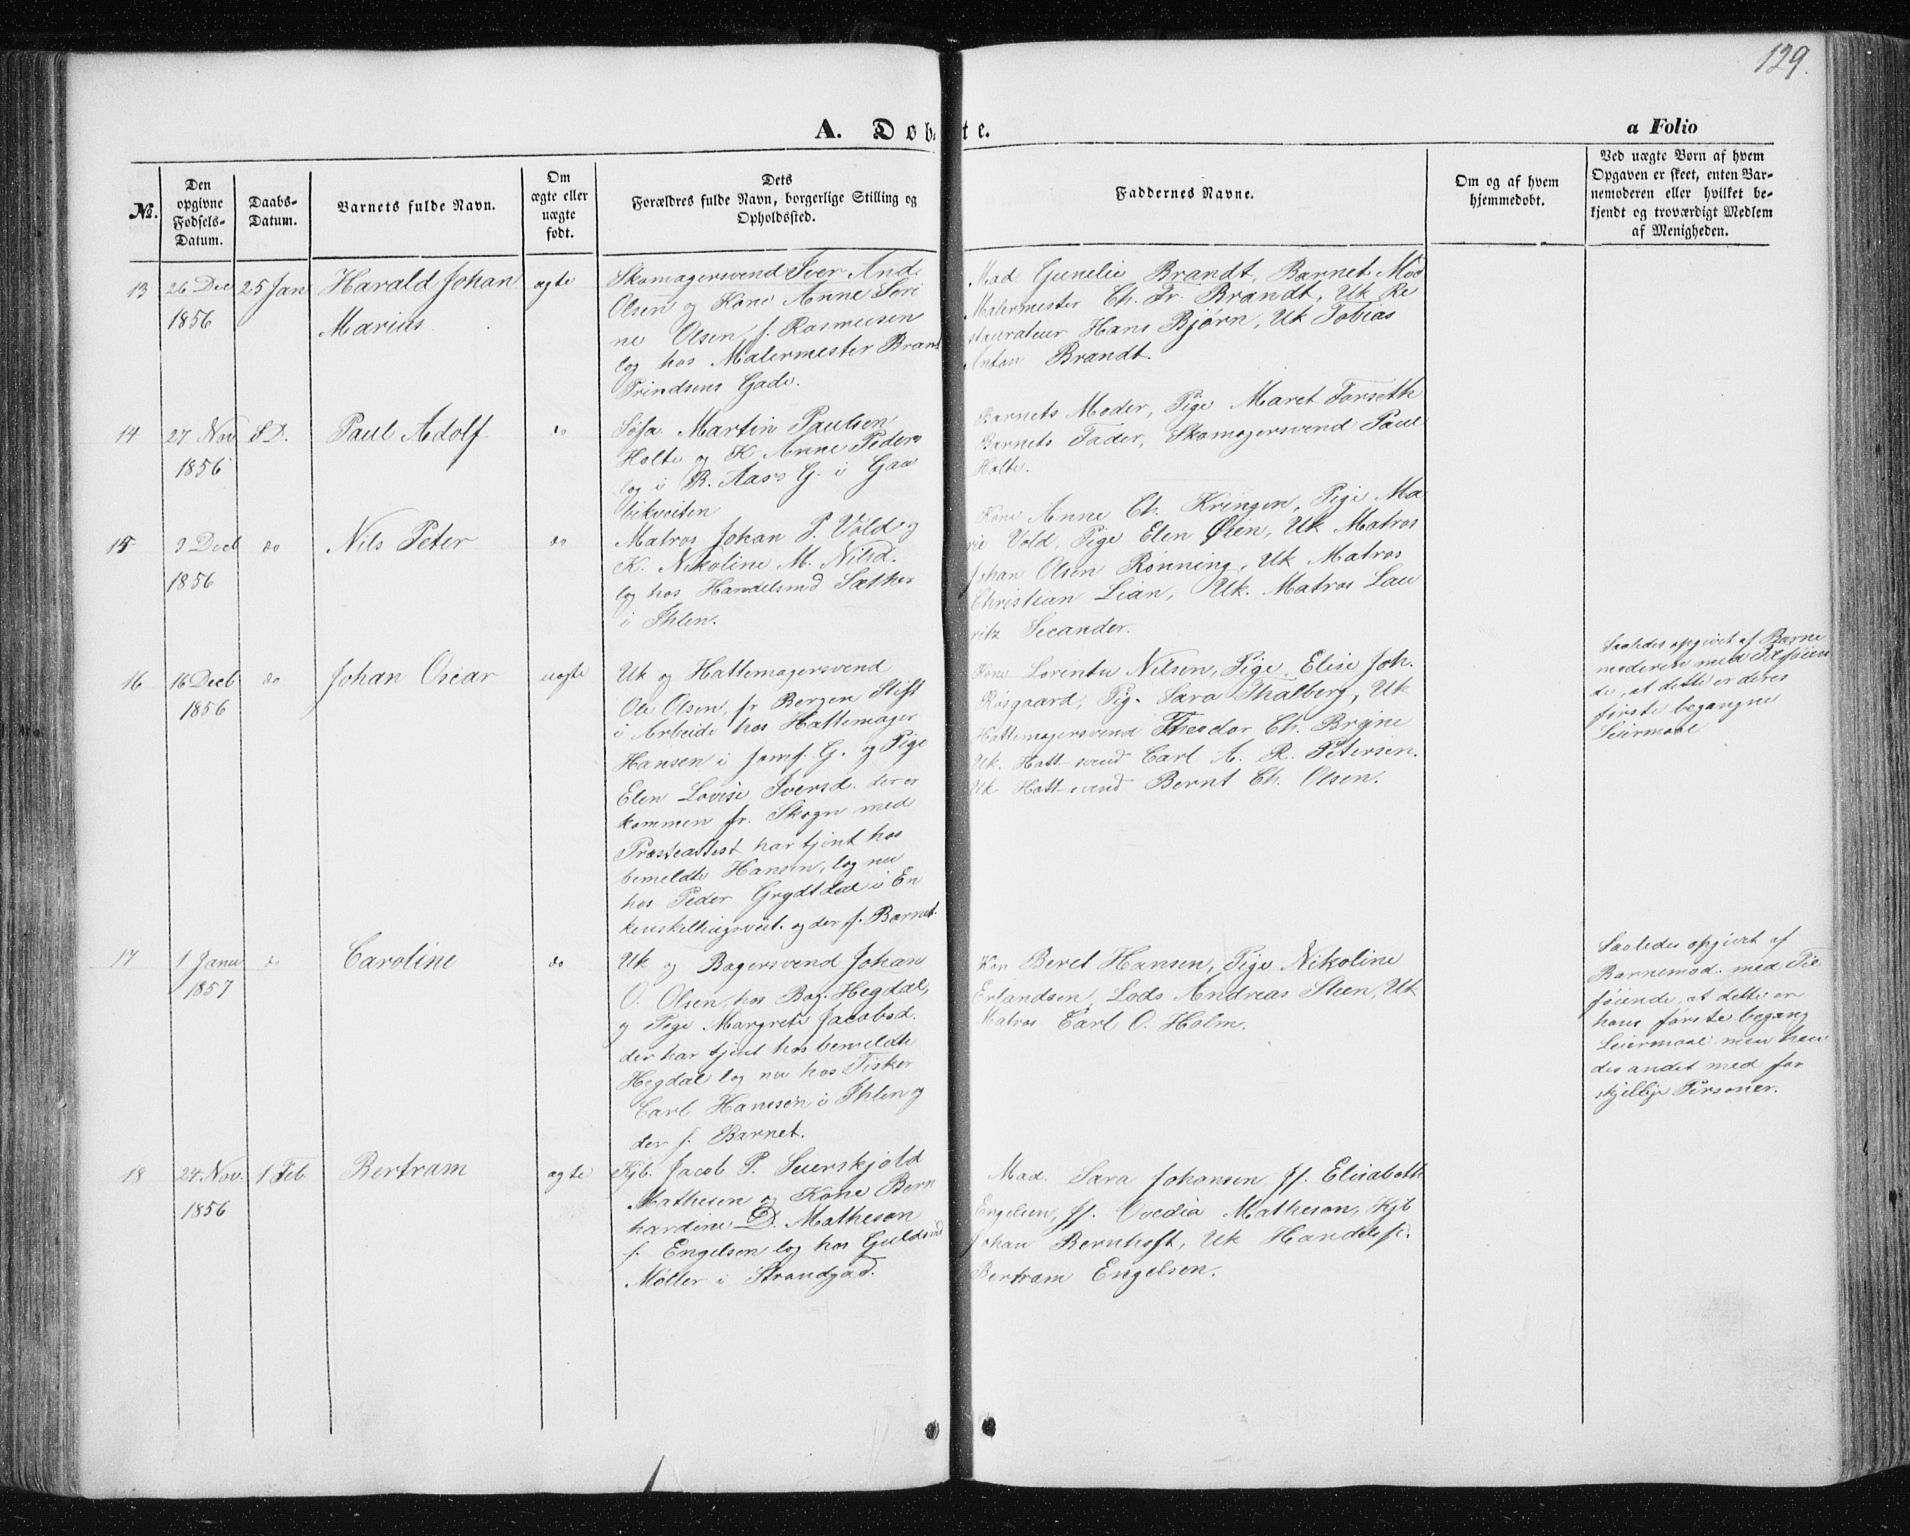 129.
A. Døbte.
a Folio
№.
Den
opgivne
Fødsels-
Datum.
Daabs-
Datum.
Barnets fulde Navn.
Om
ægte eller
uægte
født.
Dets
Forældres fulde Navn, borgerlige Stilling og
Opholdssted.
Faddernes Navne.
Om og af hvem
hjemmedøbt.
Ved uægte Børn af hvem
Opgaven er skeet, enten Bar-
nemoderen eller hvilket be-
kjendt og troværdigt Medlem
af Menigheden.
13
26 Dec
1856
25 Jan
Harald Johan
Marius
ægte
Skomagersvend Iver And.
Olsen og Kone Anne Seri
ne Olsen f. Rasmusen
log hos Malermester Brandt
Prindsens Gade.
Mad Gunelie Brandt, Barnet Mod
Malermester Ch. Fr. Brandt, Uk Re
staurateur Hans Bjørn, Uk Tobias
Anton Brandt.
14
27 Nov
1856
S.D.
Paul Adolf
do
Søfa. Martin Paulsen
Holte og K. Anne Peders
log i B. Aass G. i Gau
bikveiten
Barnets Moder, Pige Maret Forseth
Barnets Fader, Skomagersvend Paul
Holte.
15
9 Decb
1856
do
Nils Peter
do
Matros Johan P. Vold og
K. Nikoline M. Nilsd.
log hos Handelsmd Sæther
i Ihlen.
Kone Anne Ch. Kringen, Pige Ma
rie Vold, Pige Elen Øien, Uk Matros
Johan Olsen Rønning, Uk Matros
Christian Lian, Uk. Matros Lau
ritz Secander.
16
16 Decb
1856
do
Johan Oscar
uægte
Uk og Hattemagersvend
Ole Olsen, fr Bergen Stift
i Arbeide hos Hattemager
Hansen i Jomf. G. og Pige
Elen Lovise Iversd. der er
kommen fr. Skogn med
Præsteattest har tjent hos
bemeldte Hansen, log nu
hos Peder Grydtdal i En
kenskillingsveit. og der f. Barnet.
Kone Lorentu Nilsen, Pige Elise Joh.
Røsgaard, Pig. Sara Thalberg, Uk
Hattemagersvend Theodor Ch. Bryne
Uk. Hatt-svend Carl A. R. Petersen.
Uk Hatt-svend Bernt Ch. Olsen.
Saaledes opgivet af Barne
moderen med Tilføien
de, at dette er deres
første begangne
Leiermaal
17
1 Janu
1857
do
Caroline
do
Uk og Bagersvend Johan
O. Olsen, hos Bag. Hegdal,
og Pige Margrete Jacobsd.
der har tjent hos bemeldte
Hegdal log nu hos Fisker
Carl Hansen i Ihlen og
der f. Barnet.
Kon Beret Hansen, Pige Nikoline
Erlandsen, Lods Andreas Steen, Uk
Matros Carl O. Holm.
Saaledes opgivet af
Barnemod. med Til
føiende, at dette er
hans første begang
Leiermaal men hen
des andet med for
skjellige Personer.
18
24. Nov.
1856
1 Feb
Bertram
ægte
Kjb. Jacob P. Seierskjold
Mathesen og Kone Bern
hardine D. Matheson
f. Engelsen log hos Guldsmd
Møller i Strandgad.
Mad. Sara Johansen, Jf. Elisabeth
Engelsen, Jf. Ovedia Matheson, Kjb
Johan Bernhoft, Uk Handelsf.
Bertram Engelsen.